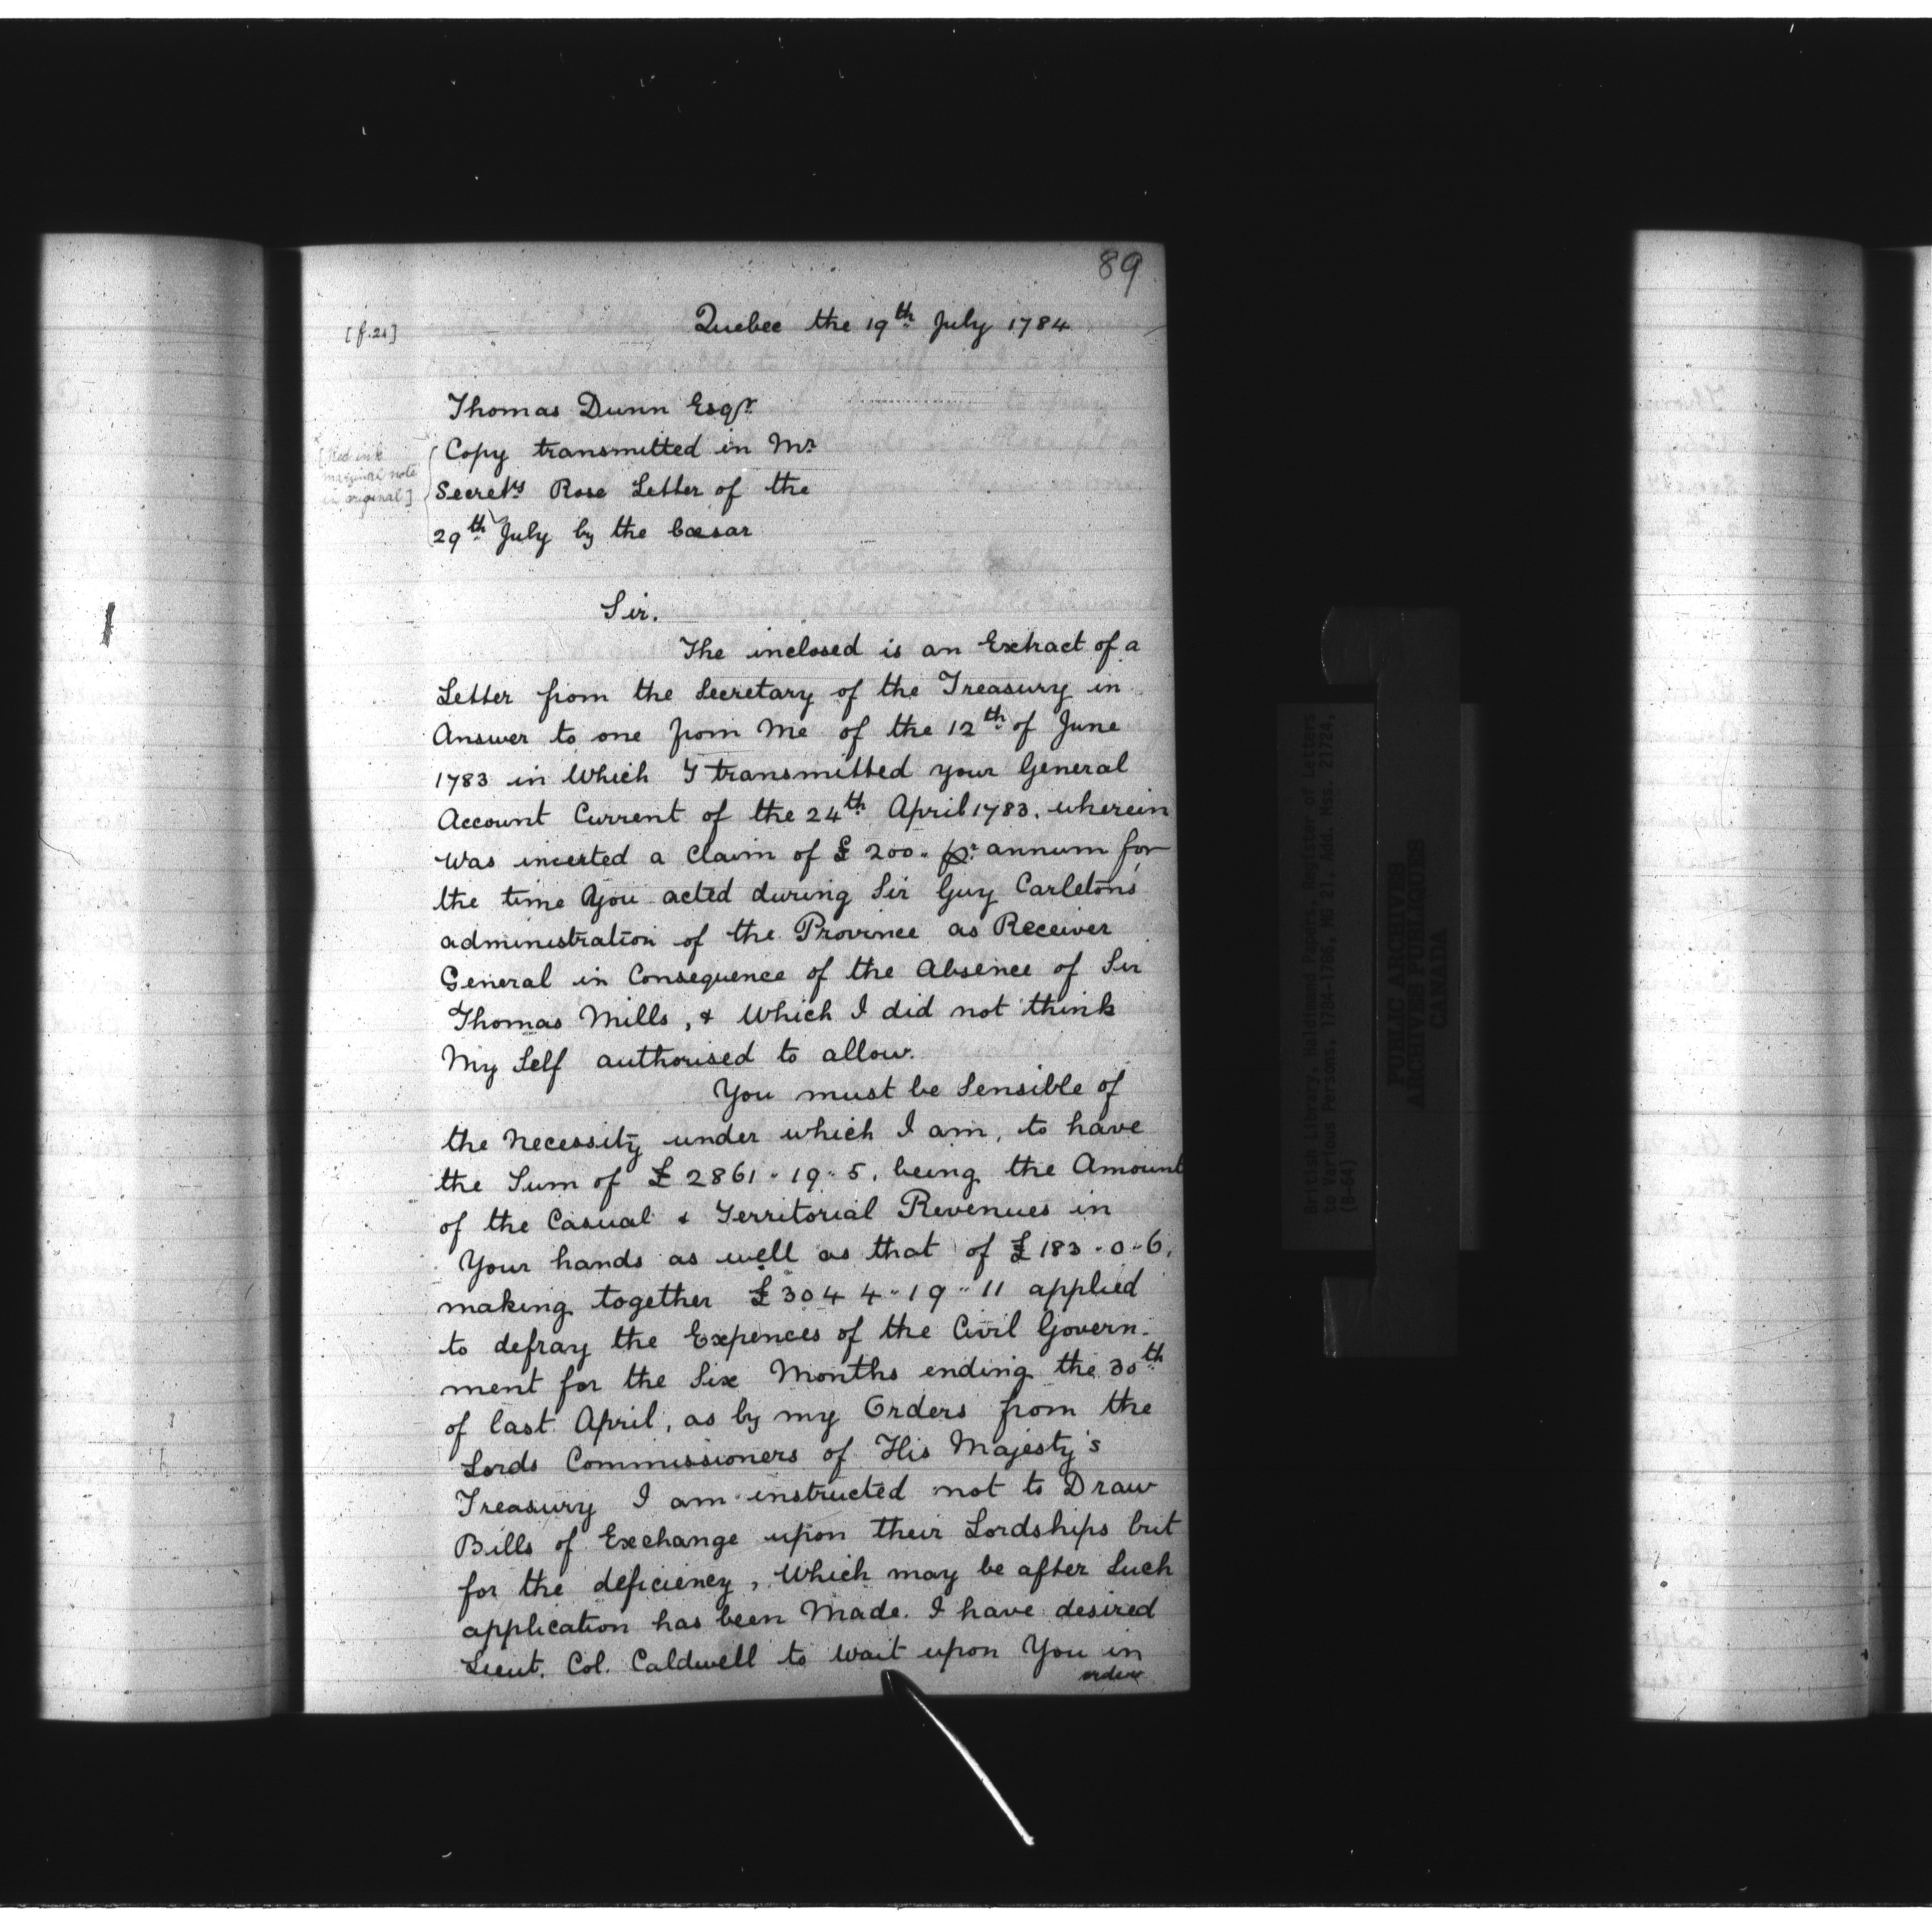 89
[f.21]
Quebec the 19th July 1784
Thomas Dunn Esqr
[Red ink
marginal note
in original]
Copy transmitted in Mr
Secrety Rose Letter of the
29th July by the Cæsar
Sir.
The inclosed is an Extract of a
Letter from the Secretary of the Treasury in
Answer to one from Me of the 12th of June
1783 in Which I transmitted your General
Account Current of the 24th April 1783. wherein
Was incerted a Claim of £ 200. pr annum for
the time You acted during Sir Guy Carleton's
administration of the Province as Receiver
General in Consequence of the Absence of Sir
Thomas Mills, & Which I did not think
My Self authorised to allow.
You must be Sensible of
the Necessity under which I am, to have
the Sum of £ 2861 " 19 " 5. being the Amount
of the Casual & Territorial Revenues in
Your hands as well as that of £ 183 - 0 - 6.
making together £ 3044 " 19 " 11 applied
to defray the Expences of the Civil Govern-
ment for the Six Months ending the 30th
of last April, as by my Orders from the
Lords Commissioners of His Majesty's
Treasury I am instructed not to Draw
Bills of Exchange upon their Lordships but
for the deficiency, Which may be after Such
application has been Made. I have desired
Lieut. Col. Caldwell to Wait upon You in
order
British Library, Haldimand Papers, Register of Letters
to Various Persons, 1784-1786, MG 21, Add. Mss. 21724,
(B-64)
PUBLIC ARCHIVES
ARCHIVES PUBLIQUES
CANADA